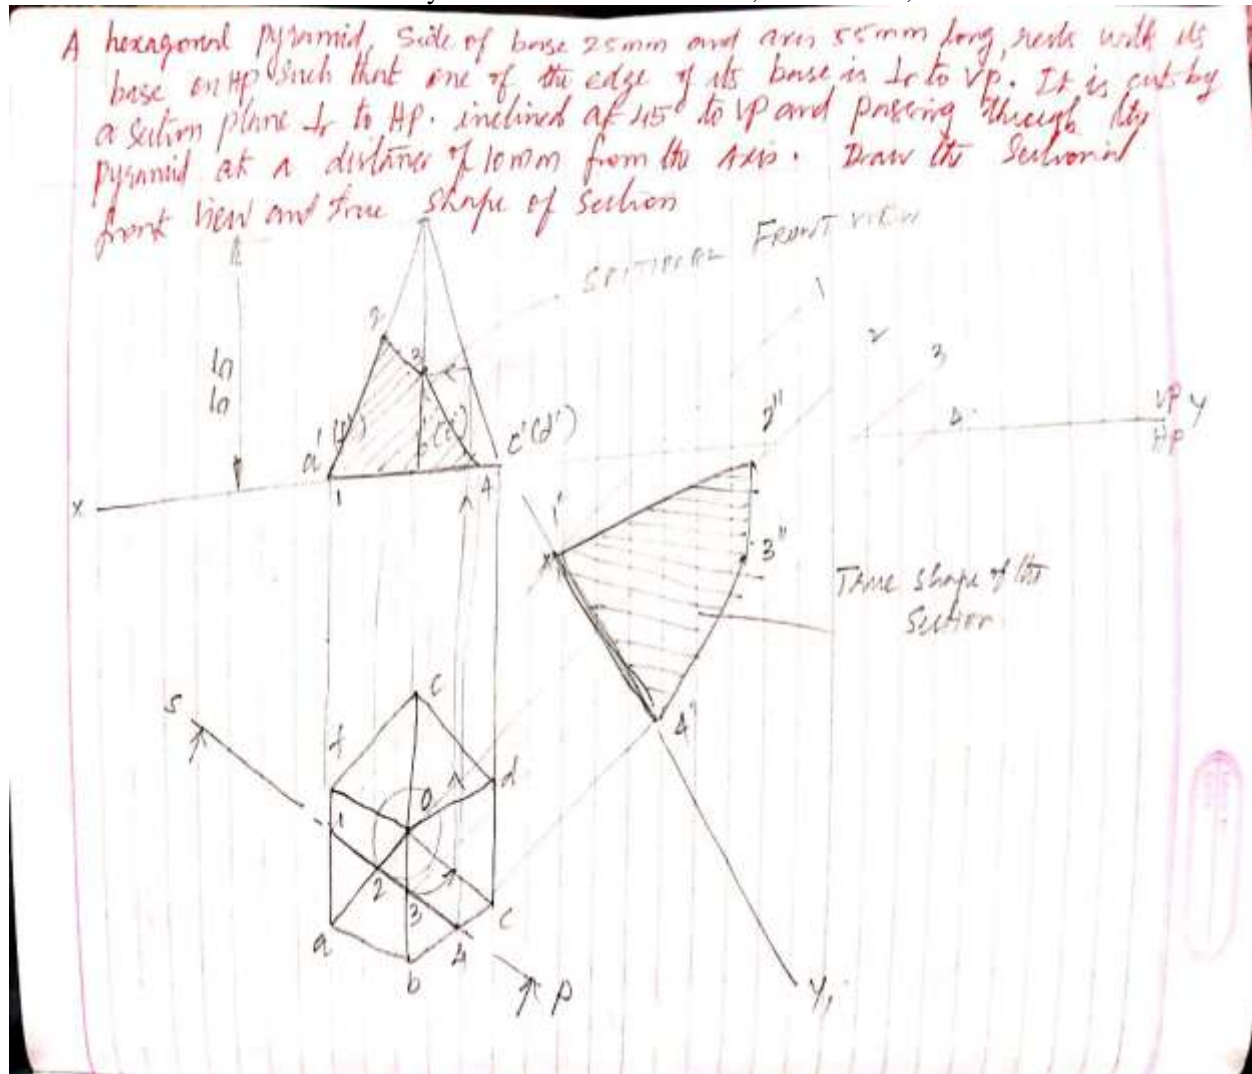 A hexagonal pyramid, Side of base 25mm and axis 55mm long, rests with its
base on HP such that one of the edge of its base is ⊥r to VP. It is cut by
a section plane ⊥r to HP. inclined at 45° to VP and passing through the
pyramid at a distance of 10mm from the Axis. Draw the Sectional
front view and true shape of section
SECTIONAL FRONT VIEW
1
2
3
4
2
3
55
a'(f')
b'(e')
c'(d')
2"
VP
HP
Y
X
1
4
1'
3"
True shape of the
Section
S
c
4"
f
d
O
1
2
3
c
a
4
b
P
Y1